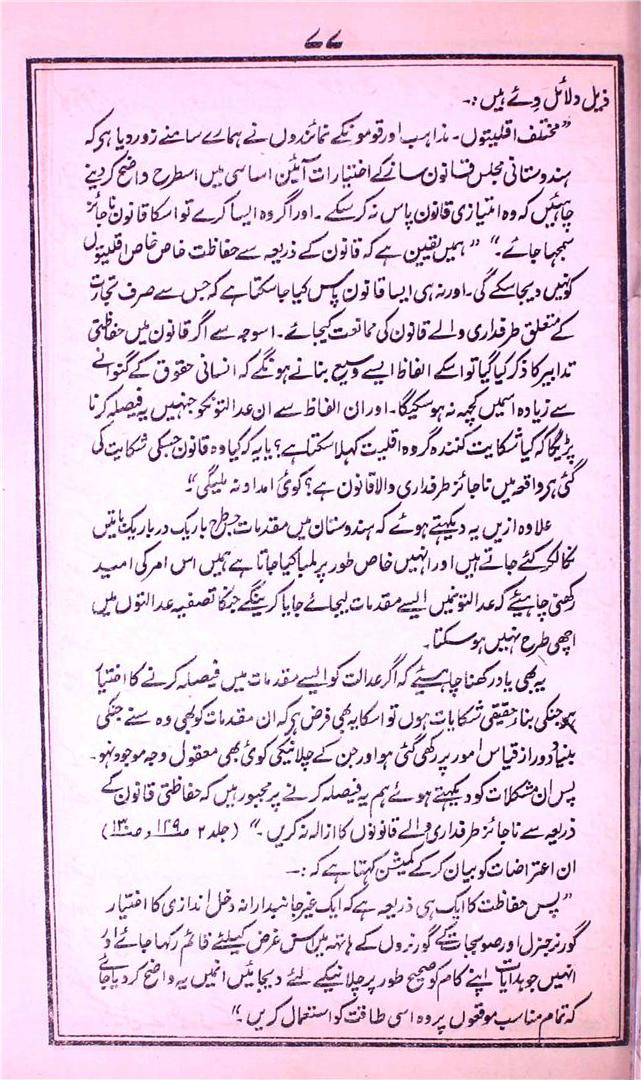 ۷۷
ذیل دلائل دئے ہیں :۔
"مختلف اقلیتوں۔ مذاہب اور قوموں کے نمائندوں نے ہمارے سامنے زور دیا ہی کہ
ہندوستانی مجلس قانون ساز کے اختیارات آئین اساسی میں اسطرح واضح کردینے
چاہئیں کہ وہ امتیازی قانون پاس نہ کرسکے۔ اور اگر وہ ایسا کرے تو اسکا قانون ناجائز
سمجھا جائے۔" "ہمیں یقین ہے کہ قانون کے ذریعہ سے حفاظت خاص خاص اقلیتوں
کو نہیں دیجا سکے گی۔ اور نہ ہی ایسا قانون پاس کیا جاسکتا ہے کہ جس سے صرف تجارت
کے متعلق طرفداری والے قانون کی ممانعت کیجائے۔ اسوجہ سے اگر قانون میں حفاظتی
تدابیر کا ذکر کیا گیا تو اسکے الفاظ ایسے وسیع بنانے ہونگے کہ انسانی حقوق کے گنوانے
سے زیادہ اسمیں کچھ نہ ہوسکیگا۔ اور ان الفاظ سے ان عدالتونکو جنہیں یہ فیصلہ کرنا
پڑیگا کہ کیا شکایت کنندہ گروہ اقلیت کہلا سکتا ہے؟ یا یہ کہ کیا وہ قانون جسکی شکایت کی
گئی ہی واقعہ میں ناجائز طرفداری والا قانون ہے؟ کوئی امداد نہ ملیگی"۔
علاوہ ازیں یہ دیکھتے ہوئے کہ ہندوستان میں مقدمات جسطرح باریک در باریک باتیں
نکالکر کئے جاتے ہیں اور انہیں خاص طور پر لمبا کیا جاتا ہے ہمیں اس امر کی امید
رکھنی چاہیئے کہ عدالتونمیں ایسے مقدمات لیجائے جایا کرینگے جنکا تصفیہ عدالتوں میں
اچھی طرح نہیں ہوسکتا۔
یہ بھی یاد رکھنا چاہیئے کہ اگر عدالت کو ایسے مقدمات میں فیصلہ کرنے کا اختیار
ہو جنکی بناء حقیقی شکایات ہوں تو اسکا یہ بھی فرض ہی کہ ان مقدمات کو بھی وہ سنے جنکی
بنیاد دور از قیاس امور پر رکھی گئی ہو اور جن کے چلانیکی کوئی بھی معقول وجہ موجود نہو۔
پس ان مشکلات کو دیکھتے ہوئے ہم یہ فیصلہ کرنے پر مجبور ہیں کہ حفاظتی قانون کے
ذریعہ سے ناجائز طرفداری والے قانونوں کا ازالہ نہ کریں۔" (جلد ۲ صـ ۱۲۹ و صـ ۱۳۰)
ان اعتراضات کو بیان کر کے کمیشن کہتا ہے کہ :۔
"پس حفاظت کا ایک ہی ذریعہ ہے کہ ایک غیر جانبدارانہ دخل اندازی کا اختیار
گورنر جنرل اور صوبجات کے گورنروں کے ہاتھ میں اس غرض کیلئے قائم رکھا جائے اور
انہیں جو ہدایات اپنے کام کو صحیح طور پر چلانیکے لئے دیجائیں انمیں یہ واضح کر دیا جائے
کہ تمام مناسب موقعوں پر وہ اسی طاقت کو استعمال کریں۔"